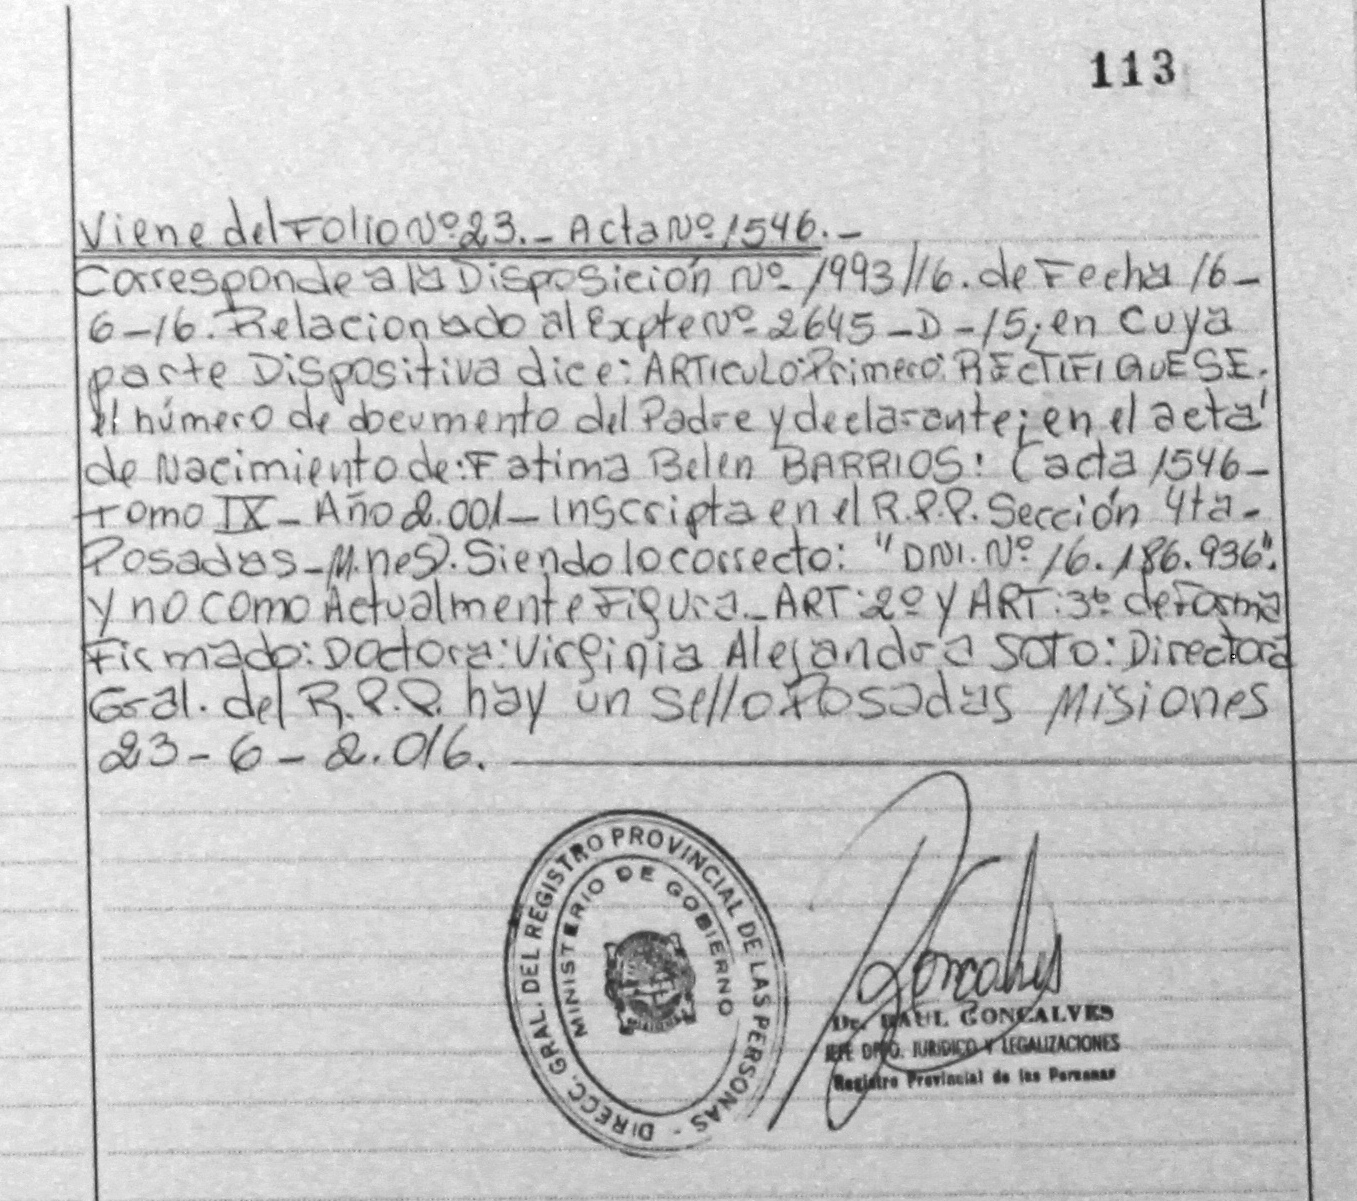 113
Viene del Folio Nº 23.- Acta Nº 1546.-
Corresponde a la Disposición Nº 1993/16. de Fecha 16-
6-16. Relacionado al Expte Nº 2645-D-15; en cuya
parte Dispositiva dice: ARTICULO Primero: RECTIFIQUESE.
el número de documento del Padre y declarante; en el acta
de Nacimiento de: Fatima Belen BARRIOS: (acta 1546-
Tomo IX- Año 2.001- Inscripta en el R.P.P. Sección 4ta-
Posadas-M.nes). Siendo lo correcto: "DNI. Nº 16.186.936".
y no como Actualmente Figura.- ART: 2º y ART: 3º de Forma
Firmado: Doctora: Virginia Alejandra SOTO: Directora
Gral. del R.P.P. hay un sello Posadas Misiones
23-6-2.016.
DIRECC. GRAL. DEL REGISTRO PROVINCIAL DE LAS PERSONAS -
MINISTERIO DE GOBIERNO
MISIONES
Goncalves
Dr. RAUL GONCALVES
JEFE DPTO. JURIDICO Y LEGALIZACIONES
Registro Provincial de las Personas